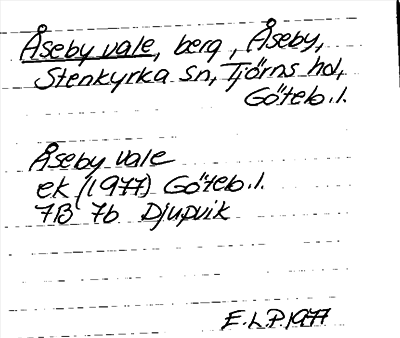 Åseby vale, berg, Åseby,
Stenkyrka sn, Tjörns hd,
Göteb. l.
Åseby vale
ek (1977) Göteb. l.
7B 7b Djupvik
E.L.P. 1977